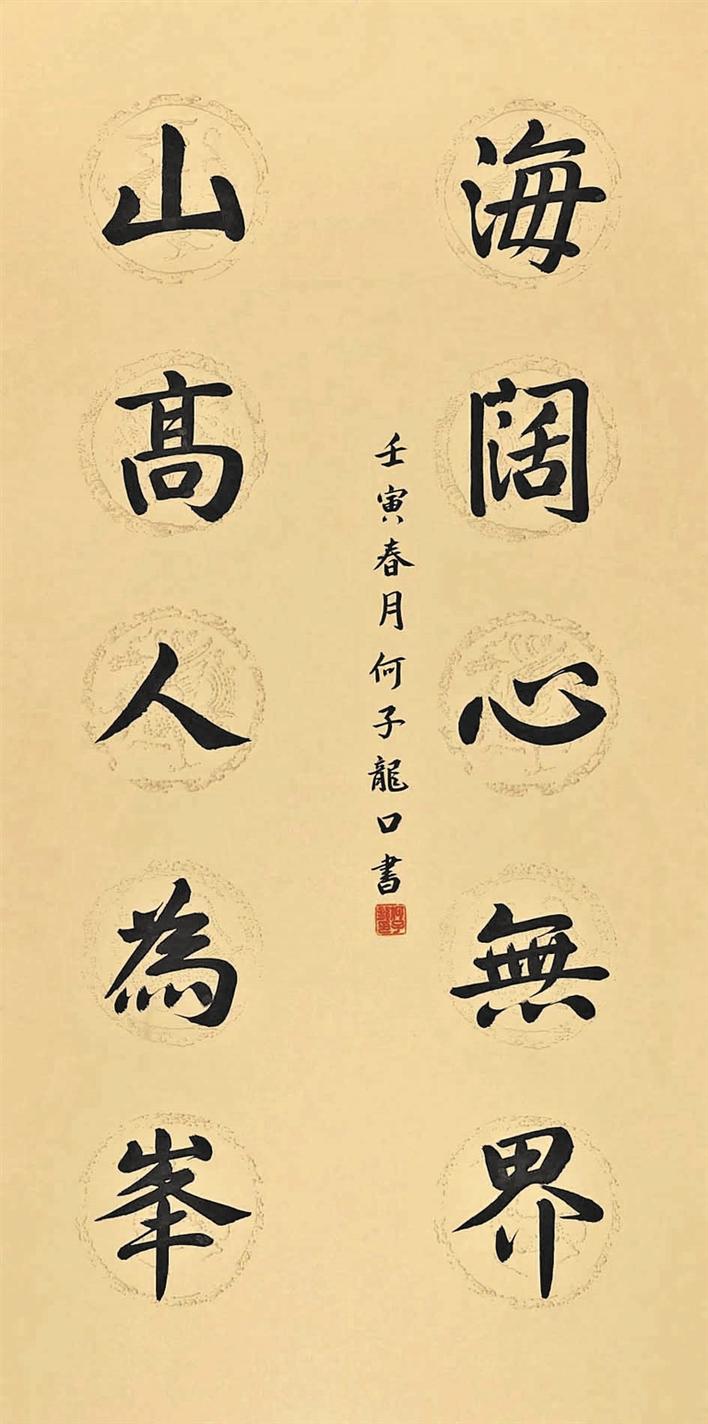 海阔心無界
山高人為峯
壬寅春月何子龍口書